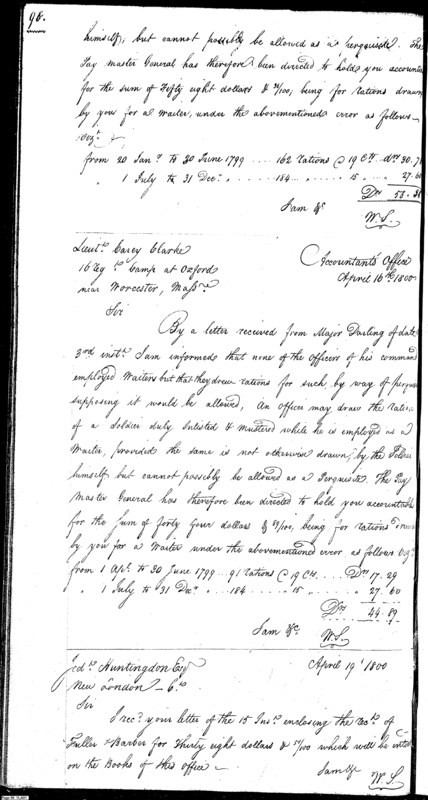 98.
himself, but cannot possibly be allowed as a perquisite. The
Pay master General has therefore been directed to hold you
for the sum of Fifty eight dollars & 38/100; being for rations drawn
by you for a Waiter, under the abovementioned error as follows
Viz.t
from 20 Jan.y to 30 June 1799 .... 162 rations @ 19 Cts. Drs 30.7
" 1 July to 31 Dec.r " ...... 184 .... " ... 15 " ..... " 27.60
Drs 58.38
I am &c
W. S.
Lieut.t Carey Clarke
16 Reg.t Camp at Oxford
near Worcester, Mass.
Accountant's Office
April 16th 1800
Sir
By a letter received from Major Darling of date
3rd inst.t I am informed that none of the Officers of his command
employed Waiters but that they drew rations for such, by way of
supposing it would be allowed, An officer may draw the
of a Soldier duly Inlisted & mustered while he is employed as a
Waiter, provided the same is not otherwise drawn, by the
himself but cannot possibly be allowed as a Perquisite. The Pay
Master General has therefore been directed to hold you accountable
for the Sum of forty four dollars & 89/100, being for rations drawn
by you for a Waiter under the abovementioned error as follows Viz.t
from 1 Ap.l to 30 June 1799 .. 91 rations @ 19 Cts ... Drs 17.29
" 1 July to 31 Dec.r " ... 184 ..... " 15 " ...... " 27.60
Drs 44.89
I am &c.
W. S.
Jed.h Huntingdon Esq.
New London - C.t
April 19th 1800
Sir
I rec.d your letter of the 15 Ins.t enclosing the rec.ts of
Fuller & Barber for Thirty eight dollars & /100 which will be
on the Books of this office -
I am &c
W. S.